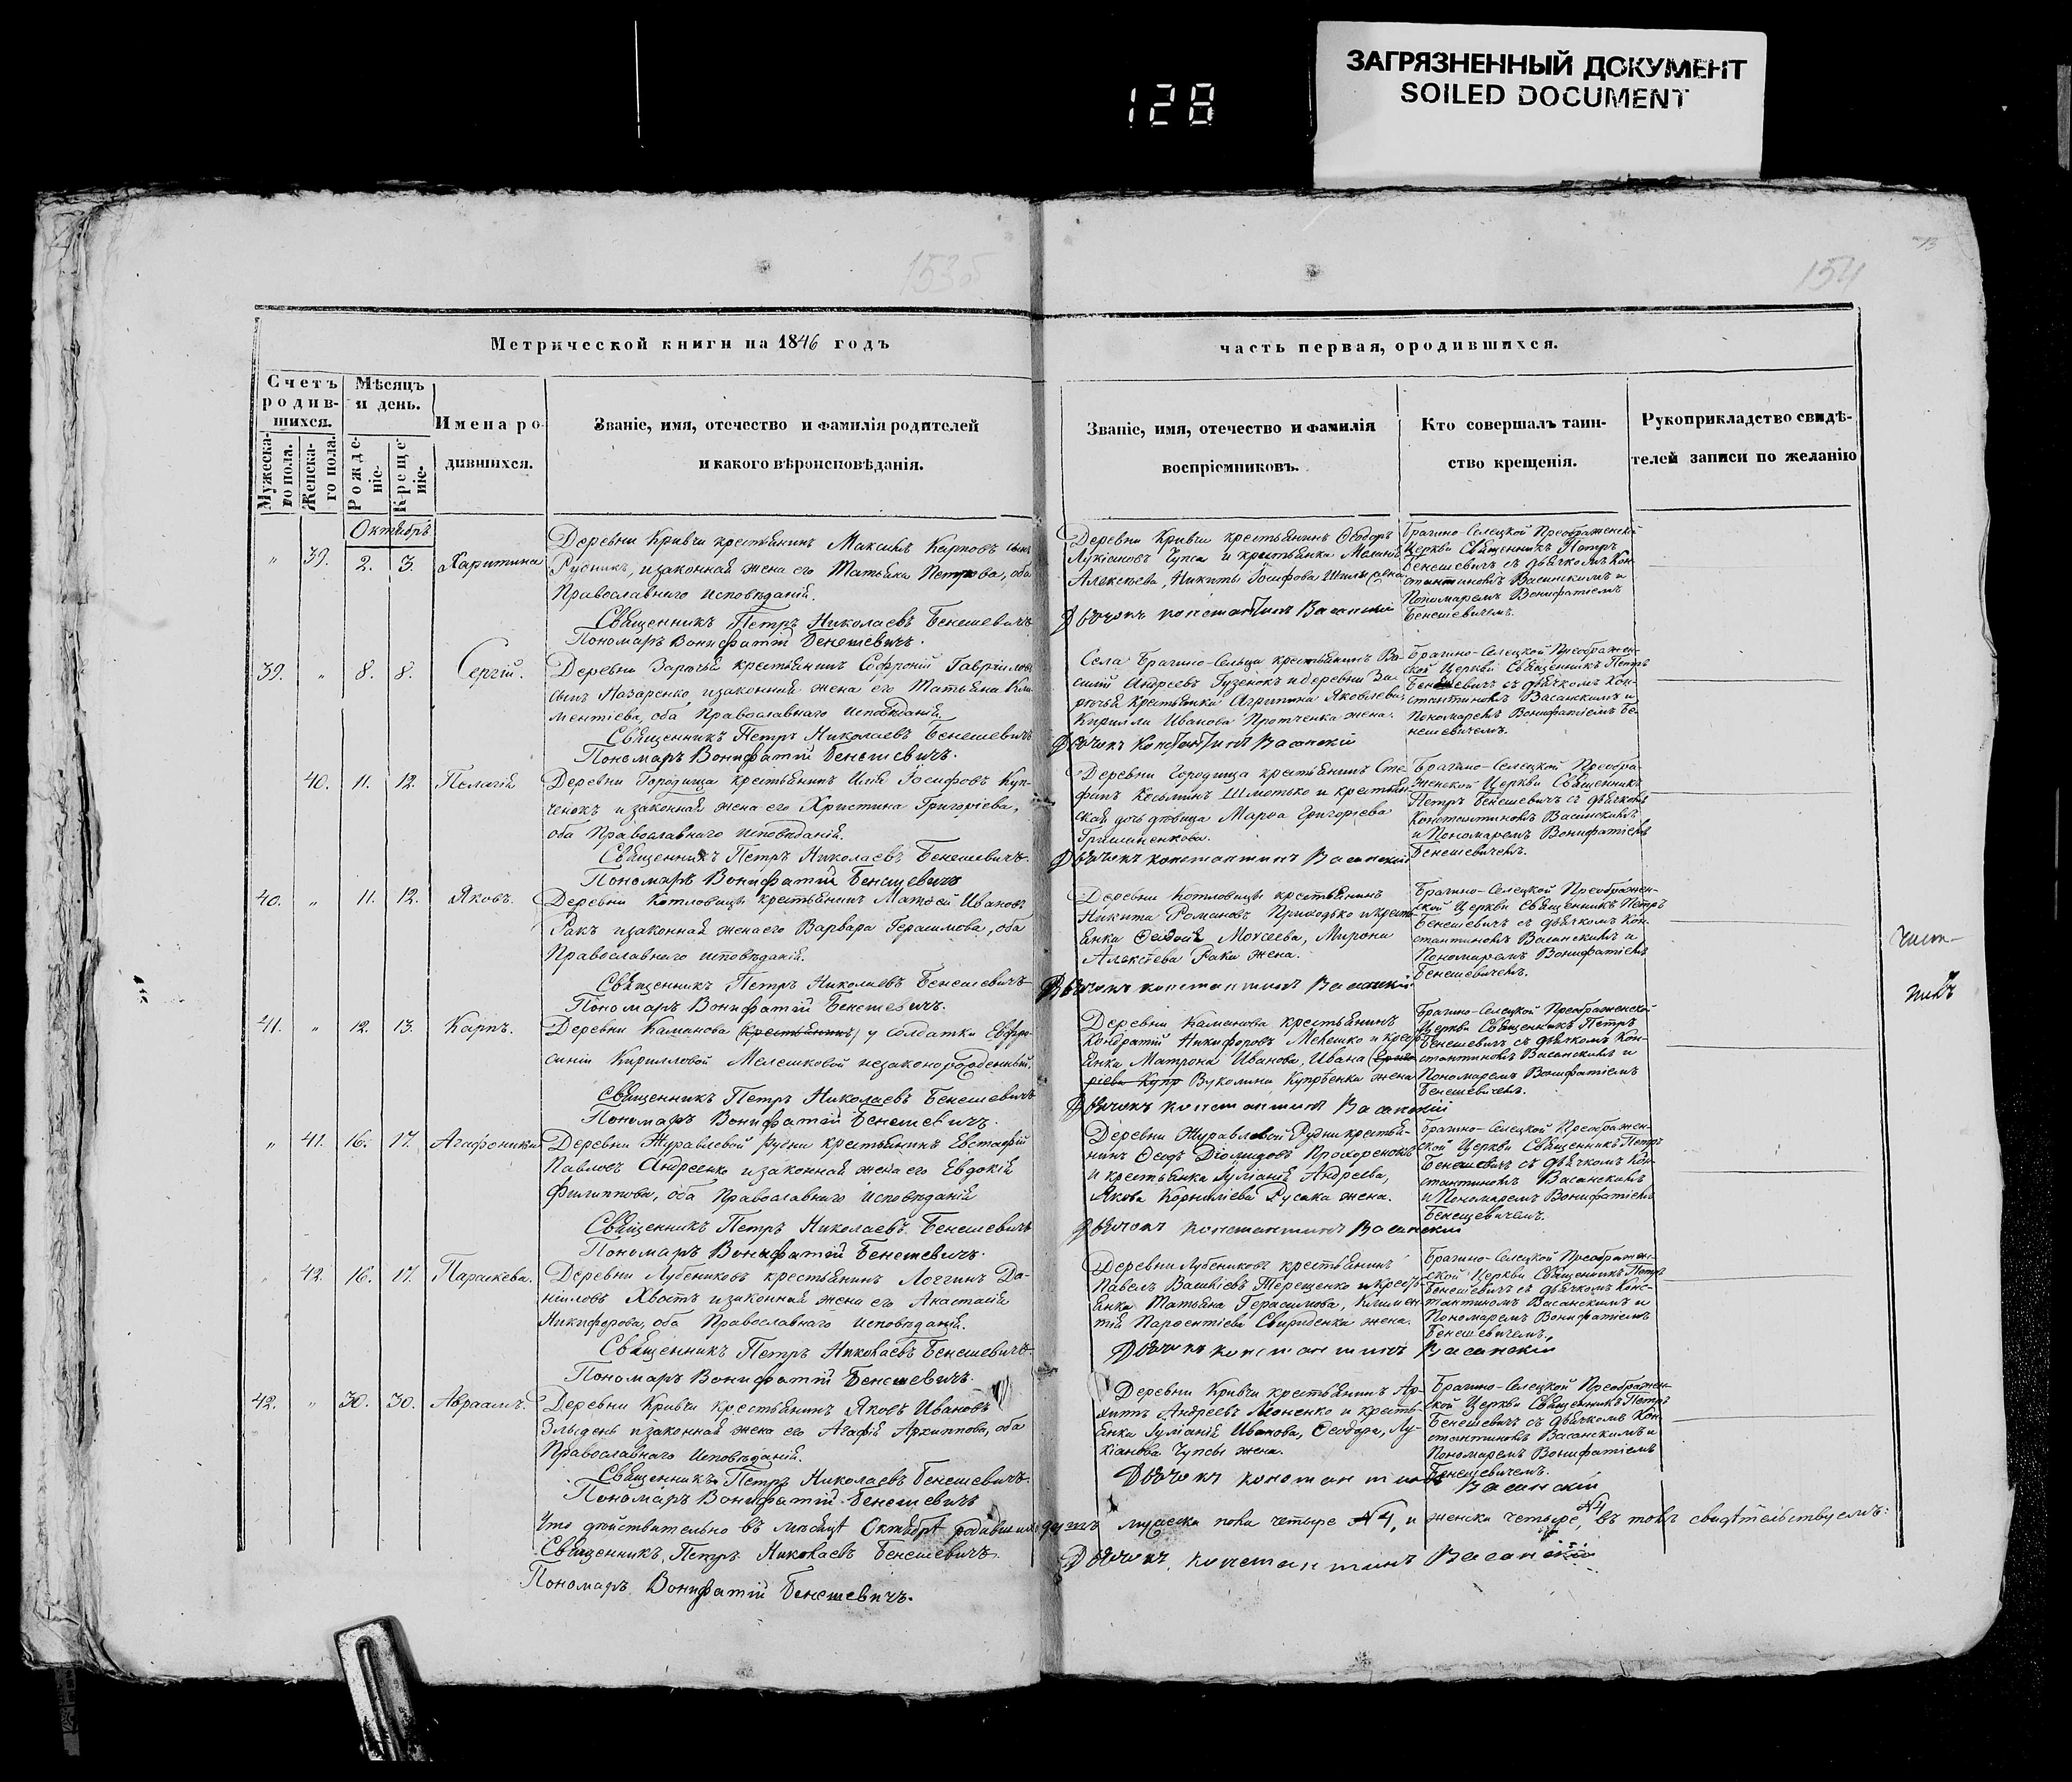 ЗАГРЯЗНЕННЫЙ ДОКУМЕНТ
SOILED DOCUMENT
128
153об
154
Метрической книги на 1846 годъ
часть первая, ородившихся.
Счетъ родив-шихся.
Мужеска-го пола.
Женска-го пола.
Мѣсяцъ и день.
Рожде-ніе.
Креще-ніе.
Имена ро-
дившихся.
Званіе, имя, отечество и фамилія родителей
и какого вѣроисповѣданія.
Званіе, имя, отечество и фамилія
воспріемниковъ.
Кто совершалъ таин-
ство крещенія.
Рукоприкладство свидѣ-
телей записи по желанію
Октябрь
" 39. 2. 3. Харитина
Деревни Кривчи крестьянинъ Максимъ Карповъ сынъ
Рудникъ, изаконная жена его Татьяна Петрова, оба
Православнаго исповѣданія.
Священникъ Петръ Николаевъ Бенешевичъ
Пономарь Вонифатій Бенешевичъ.
Деревни Кривчи крестьянинъ Ѳеодоръ
Лукіановъ Чупса и крестьянка
Алексѣева, Никиты Іосифова жена
Дьячокъ Константинъ Васанскій
Брагино-Селецкой Преображенской
Церкви Священникъ Петръ
Бенешевичъ съ дьячкомъ Кон-
стантиномъ Васанскимъ и
Пономаремъ Вонифатіемъ
Бенешевичемъ.
39. " 8. 8. Сергій.
Деревни Заречья крестьянинъ Софроній Гавриловъ
сынъ Назаренко изаконная жена его Татьяна Кли-
ментіева, оба Православнаго исповѣданія.
Священникъ Петръ Николаевъ Бенешевичъ
Пономарь Вонифатій Бенешевичъ.
Села Брагино-Сельца крестьянинъ Ва-
силій Андреевъ Гузенокъ и деревни За-
речья крестьянка Агрипина Яковлева
Кирилла Иванова Протченка жена.
Дьячокъ Константинъ Васанскій
Брагино-Селецкой Преображен-
ской Церкви Священникъ Петръ
Бенешевичъ съ дьячкомъ Кон-
стантиномъ Васанскимъ и
Пономаремъ Вонифатіемъ Бе-
нешевичемъ.
40. 11. 12. Пелагія
Деревни Городища крестьянинъ Илія Іосифовъ Куп-
ченокъ изаконная жена его Христина Григоріева,
оба Православнаго исповѣданія.
Священникъ Петръ Николаевъ Бенешевичъ.
Пономарь Вонифатій Бенешевичъ
Деревни Городища крестьянинъ Сте-
фанъ Козьминъ Шмотько и крестьян-
ская дочь дѣвица Марѳа Григорьева
Гришаненкова.
Дьячокъ Константинъ Васанскій
Брагино-Селецкой Преобра-
женской Церкви Священникъ
Петръ Бенешевичъ съ дьячкомъ
Константиномъ Васанскимъ
и Пономаремъ Вонифатіемъ
Бенешевичемъ.
40. " 11. 12. Яковъ.
Деревни Котловицы крестьянинъ Матѳей Ивановъ
Ракъ изаконная жена его Варвара Герасимова, оба
Православнаго исповѣданія.
Священникъ Петръ Николаевъ Бенешевичъ
Пономарь Вонифатій Бенешевичъ.
Деревни Котловицы крестьянинъ
Никита Романовъ Приходько и кресть-
янка Ѳеодосія Моисеева, Мирона
Алексѣева Рака жена.
Дьячокъ Константинъ Васанскій
Брагино-Селецкой Преображен-
ской Церкви Священникъ Петръ
Бенешевичъ съ дьячкомъ Кон-
стантиномъ Васанскимъ и
Пономаремъ Вонифатіемъ
Бенешевичемъ.
41. " 12. 13. Карпъ.
Деревни Каманова (крестьянинъ) у солдатки Евфро-
синіи Кирилловой Мелешковой незаконорожденный.
Священникъ Петръ Николаевъ Бенешевичъ
Пономарь Вонифатій Бенешевичъ.
Деревни Каманова крестьянинъ
Кондратій Никифоровъ Мелешко и крест-
янка Матрона Иванова, Ивана (Григо-
ріева Купр Вуколина Купрѣенка жена
Дьячокъ Константинъ Васанскій
Брагино-Селецкой Преображенской
Церкви Священникъ Петръ
Бенешевичъ съ дьячкомъ Кон-
стантиномъ Васанскимъ и
Пономаремъ Вонифатіемъ
Бенешевичемъ.
" 41. 16. 17. Агафоника
Деревни Журавлевой Рудни крестьянинъ Евстафій
Павловъ Андреенко изаконная жена его Евдокія
Филиппова, оба Православнаго исповѣданія
Священникъ Петръ Николаевъ Бенешевичъ
Пономарь Вонифатій Бенешевичъ.
Деревни Журавлевой Рудни крестья-
нинъ Діомидовъ Прохоренокъ
и крестьянка Іуліанія Андреева,
Якова Корниліева Русака жена.
Дьячокъ Константинъ Васанскій
Брагино-Селецкой Преображен-
ской Церкви Священникъ Петръ
Бенешевичъ съ дьячкомъ Кон-
стантиномъ Васанскимъ
и Пономаремъ Вонифатіемъ
Бенешевичемъ.
42. 16. 17. Параскева.
Деревни Лубениковъ крестьянинъ Логгинъ Да-
ніиловъ Хвостъ изаконная жена его Анастасія
Никифорова, оба Православнаго исповѣданія.
Священникъ Петръ Николаевъ Бенешевичъ.
Пономарь Вонифатій Бенешевичъ.
Деревни Лубениковъ крестьянинъ
Павелъ Терещенко и кресть-
янка Татьяна Герасимова, Климен-
тія Парѳентіева Свириденка жена.
Дьячокъ Константинъ Васанскій
Брагино-Селецкой Преображен-
ской Церкви Священникъ Петръ
Бенешевичъ съ дьячкомъ Конс-
тантиномъ Васанскимъ и
Пономаремъ Вонифатіемъ
Бенешевичемъ.
42. " 30. 30. Авраамъ.
Деревни Кривчи крестьянинъ Яковъ Ивановъ
Злыдень изаконная жена его Агафія Архиппова, оба
Православнаго исповѣданія.
Священникъ Петръ Николаевъ Бенешевичъ.
Пономарь Вонифатій Бенешевичъ
Деревни Кривчи крестьянинъ Ар-
хиппъ Андреевъ и кресть-
янка Іуліанія Иванова, Ѳеодора, Лу-
кіанова Чупсы жена.
Дьячокъ Константинъ Васанскій
Брагино-Селецкой Преображен-
ской Церкви Священникъ Петръ
Бенешевичъ съ дьячкомъ Кон-
стантиномъ Васанскимъ и
Пономаремъ Вонифатіемъ
Бенешевичемъ.
Что дѣйствительно въ мѣсяцѣ Октябрѣ родившихся мужеска пола четыре №4, и женска четыре, №4 въ томъ свидѣтельствуемъ:
Священникъ Петръ Николаевъ Бенешевичъ
Дьячокъ Константинъ Васанскій
Пономарь Вонифатій Бенешевичъ.